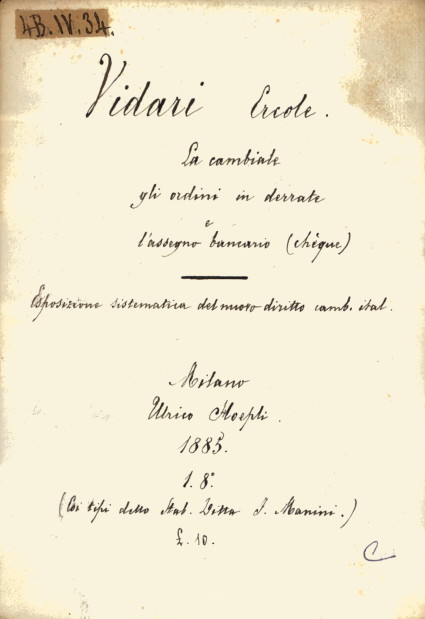 4B.IV.34.
Vidari Ercole.
La cambiale
gli ordini in derrate
e
l'assegno bancario (chèque)
Esposizione sistematica del nuovo diritto camb. ital.
Milano
Ulrico Hoepli.
1885.
1. 8°.
(Coi tipi dello Stab. Ditta J. Manini.)
£. 10.
C